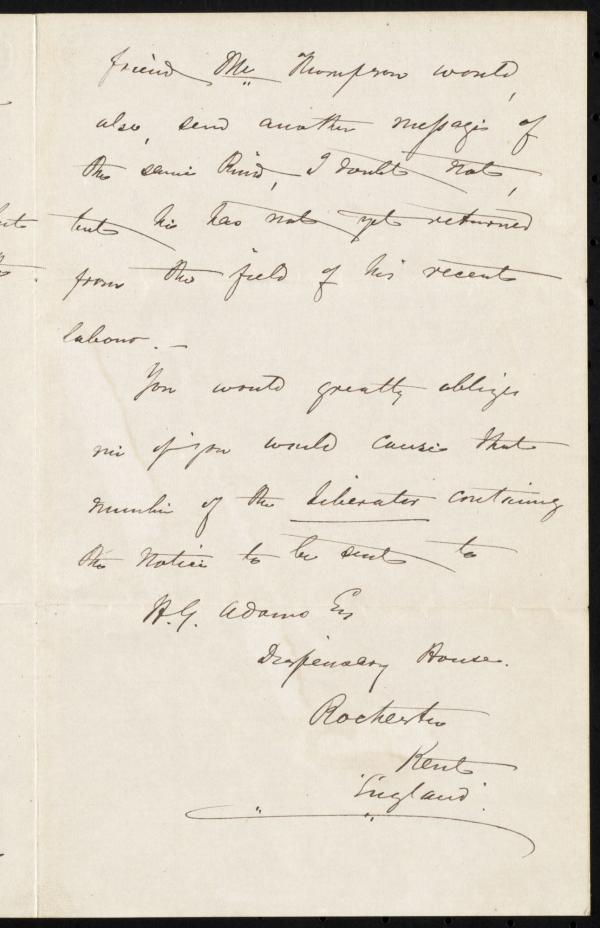 friend Mr Thompson would,
also, send another message of
the same kind, I doubt not,
but he has not yet returned
from the field of his recent
labour. —
You would greatly oblige
me if you would cause that
number of the Liberator containing
the Notice to be sent to
H.G. Adams Esq
Dispensary House.
Rochester
Kent
England.